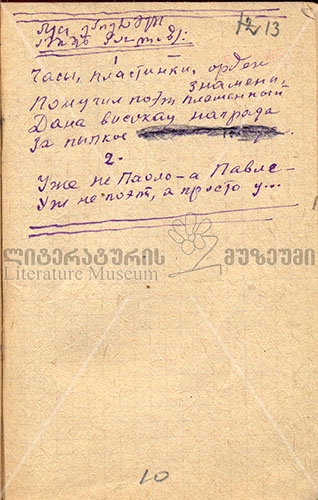 12 13
1
Часы, пластинки, орден
знамени,
Получил поэт пламенный
Дана високая награда
За пылкое
2.
Уже не Паоло – а Павле –
Уж не поэт, а просто у...
ლიტერატურის მუზეუმი
Literature Museum
10